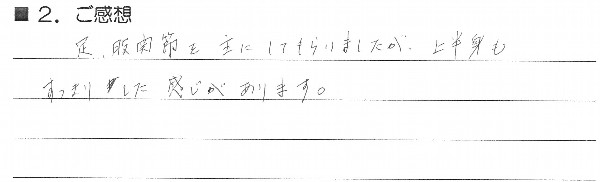 ■ 2．ご感想
足、股関節を主にしてもらいましたが、上半身も
すっきりした感じがあります。